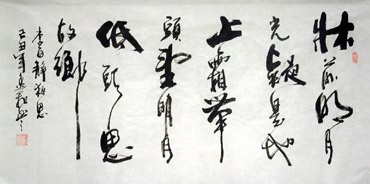 床前明月
光疑是地
上霜举
头望明月
低头思
故乡
李白静夜思
己丑年